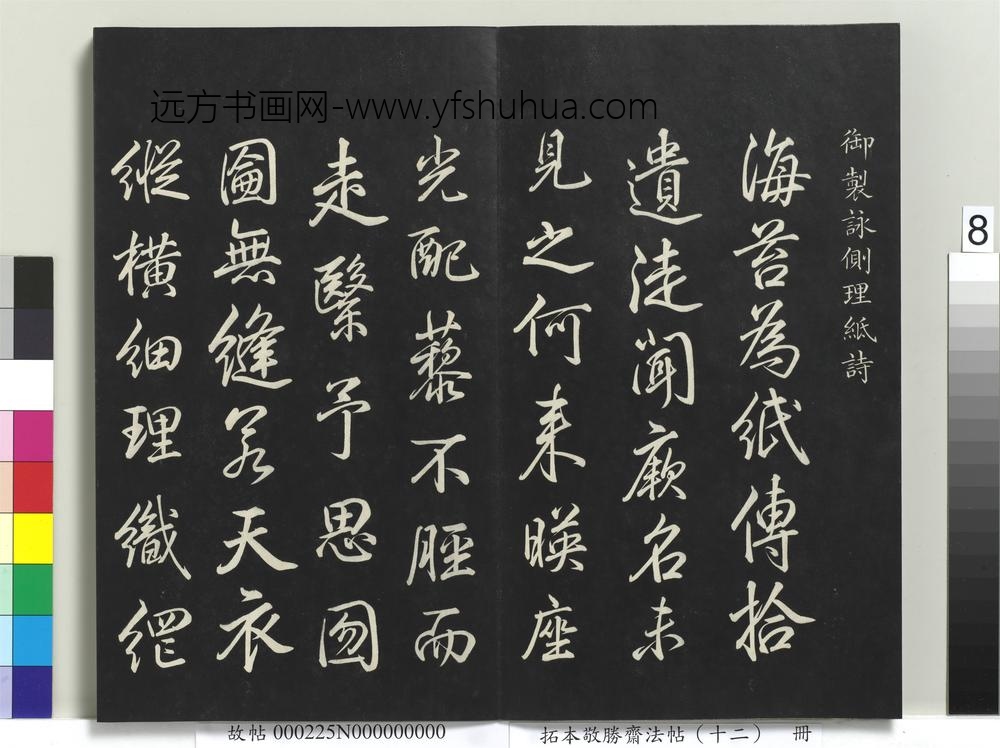 远方书画网-www.yfshuhua.com
御製詠側理紙詩
海苔為紙傳拾
遺徒聞厥名未
見之何来暎座
光配藜不脛而
走繄予思囫
圇無縫若天衣
縱橫細理織網
8
故帖 000225N000000000
拓本敬勝齋法帖（十二） 冊